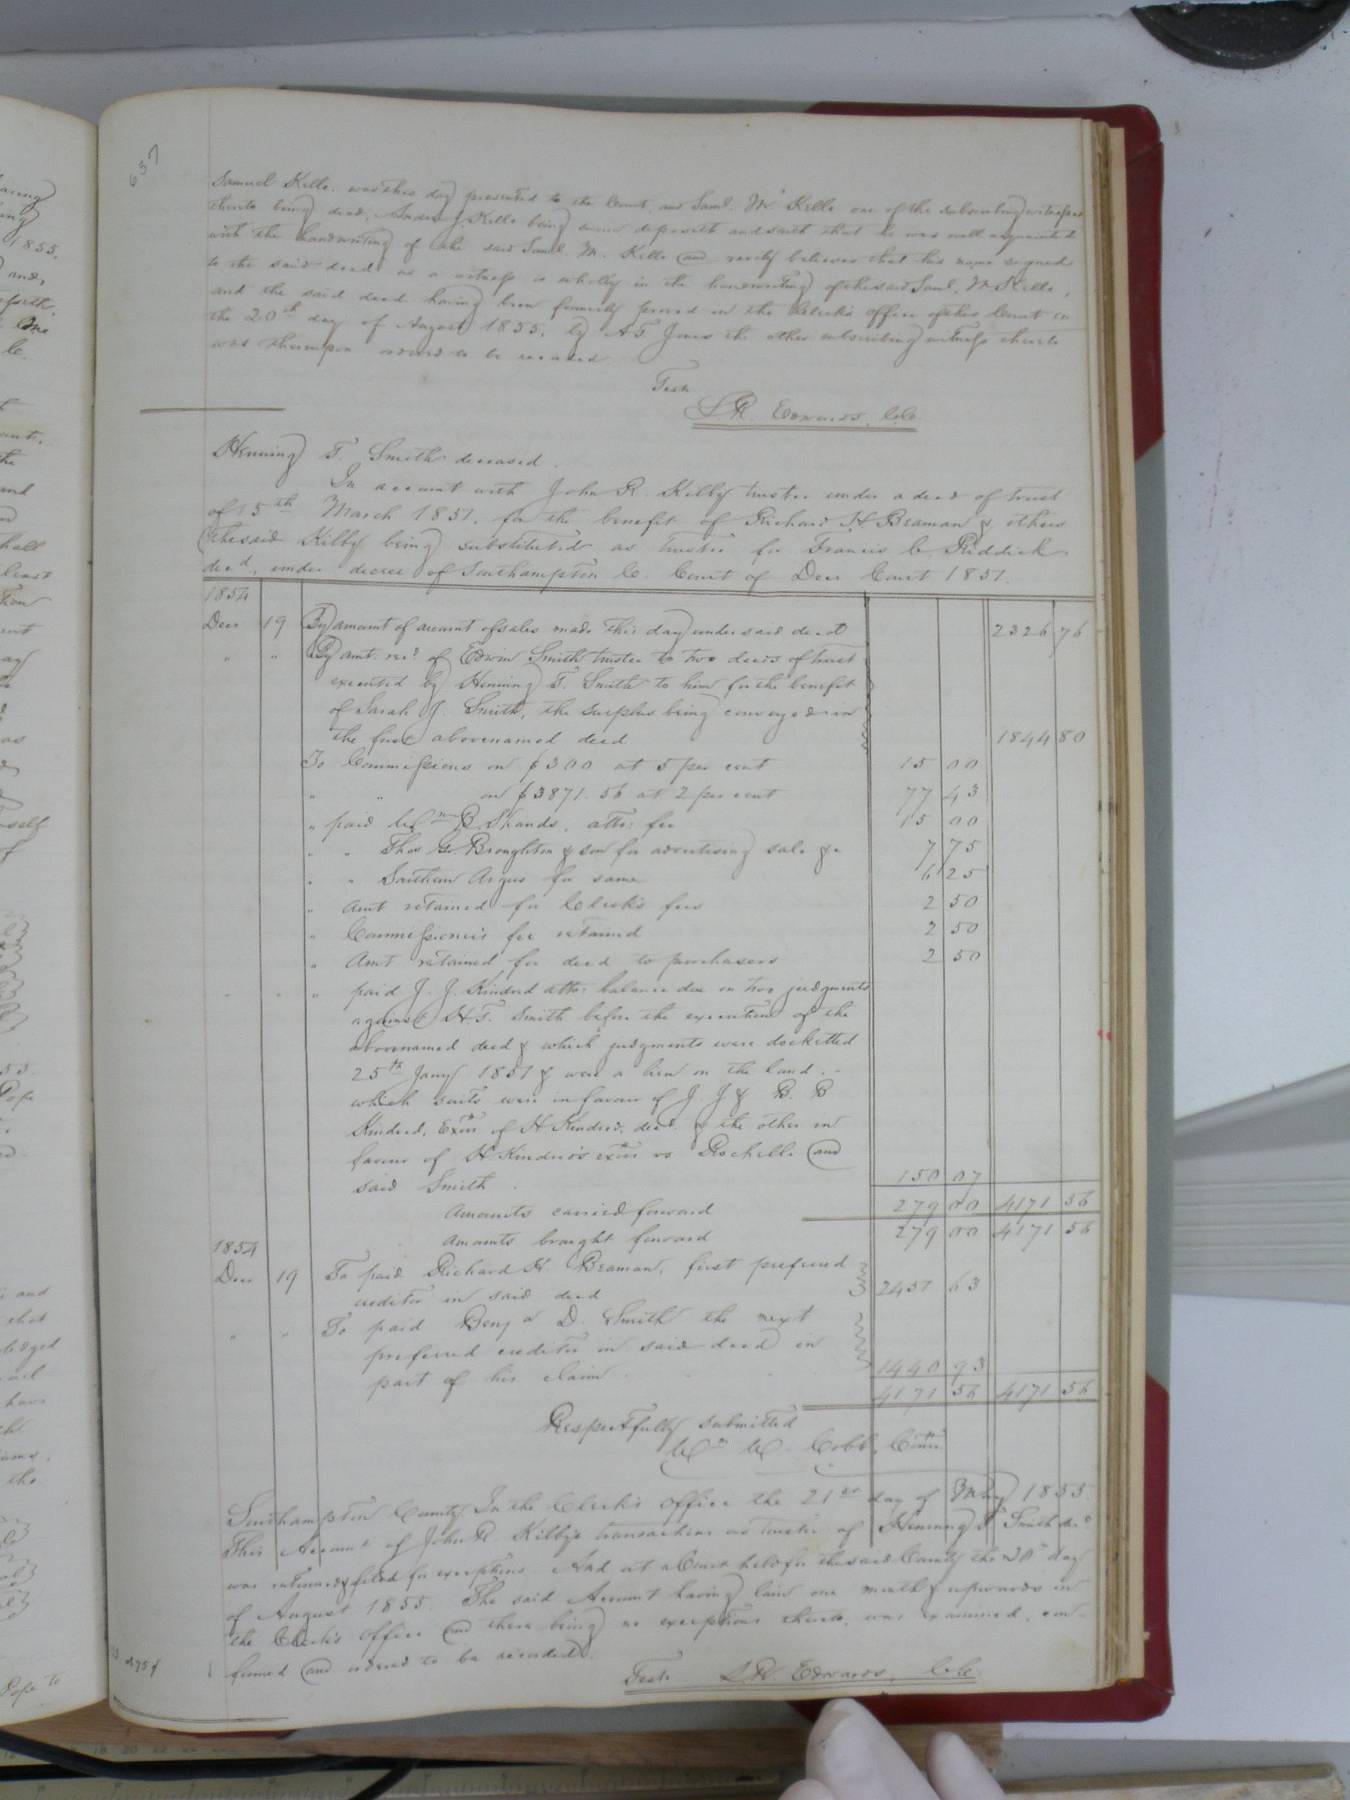 637
Samuel Kello. was this day presented to the Court, and Saml. M. Kello one of the subscribing witnesses
thereto being dead, J. Kello being sworn deposeth and saith that he was well acquainted
with the handwriting of the said Saml. M. Kello and verily believes that his name signed
to the said deed as a witness is wholly in the handwriting of the said Saml. M. Kello,
and the said deed having been formerly proved in the Clerk's office of this Court on
the 20th day of August 1855, by A S Jones the other subscribing witness thereto
was thereupon ordered to be recorded
Teste
L R Edwards, C.C.
Henning T. Smith deceased.
In account with John R. Kilby trustee under a deed of trust
of 15th March 1851. for the benefit of Richard H Beaman & others
(the said Kilby being substituted as trustee for Francis C Riddick
decd., under decree of Southampton C. Court of Decr Court 1851.
1854
Decr 19 By amount of account of sales made this day under said deed 2326 76
" " By amt. recd. of Edwin Smith trustee to two deeds of trust
executed by Henning T. Smith to him for the benefit
of Sarah J. Smith, the surplus being conveyed in
the first abovenamed deed 1844 80
To Commissions on $300 at 5 per cent 15 00
" " on $3871.56 at 2 per cent 77 43
" paid Wm B. Shands, atto: fee 15 00
" " Thos G. Broughton & son for advertising sale &c 7 75
" " Southern Argus for same 6 25
" Amt retained for Clerk's fees 2 50
" Commissioner's fee retained 2 50
" Amt retained for deed to purchasers 2 50
" " " paid J. J. Kindred atto: balance due on two judgments
against H. T. Smith before the execution of the
abovenamed deed & which judgments were docketted
25th Jany 1851 & were a lien on the land. -
which suits were in favour of J. J & B. B
Kindred, Exors of H Kindred, decd. & the other in
favour of H Kindred's exors vs Rochelle and
said Smith. 150 07
Amounts carried forward 279 00 4171 56
Amounts brought forward 279 00 4171 56
1854
Decr 19 To paid Richard H. Beaman, first preferred
creditor in said deed 2451 63
" " To paid Benj a D. Smith the next
preferred creditor in said deed in
part of his claim 1440 93
4171 56 4171 56
Respectfully submitted
Wm W. Cobb, Comr
Southampton County, In the Clerk's office the 21st day of May 1855.
This Account of John R. Kilby's transactions as trustee of Henning T Smith decd
was returned & filed for exceptions. And at a Court held for the said County the 20th day
of August 1855. The said Account having lain one month & upwards in
the Clerk's office and there being no exceptions thereto, was examined, con-
firmed and ordered to be recorded.
Teste L R Edwards, C.C.